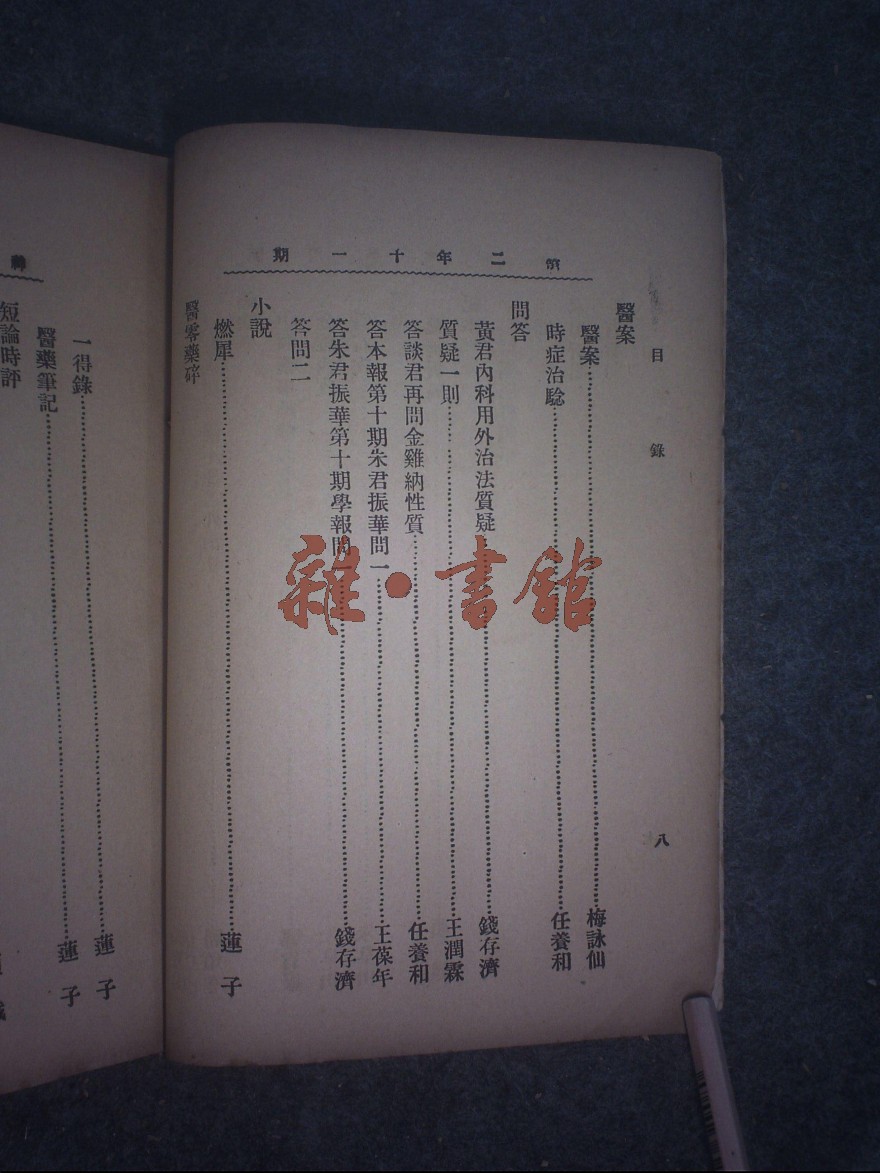 第二年十一期
目錄
八
醫案
醫案……梅詠仙
時症治驗……任養和
問答
黃君內科用外治法質疑……錢存濟
質疑一則……王潤霖
答談君再問金雞納性質……任養和
答本報第十期朱君振華問一……王葆年
答朱君振華第十期學報問一……錢存濟
答問二
小說
燃犀……蓮子
醫零藥碎
一得錄……蓮子
醫藥筆記……蓮子
短論時評
雜·書館